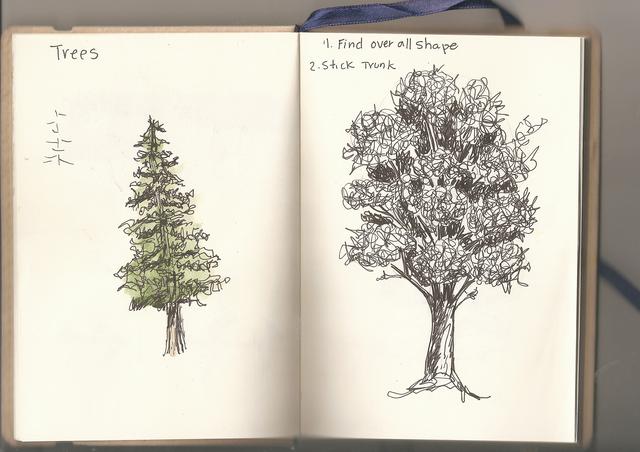 Trees
1. Find over all shape
2. Stick Trunk